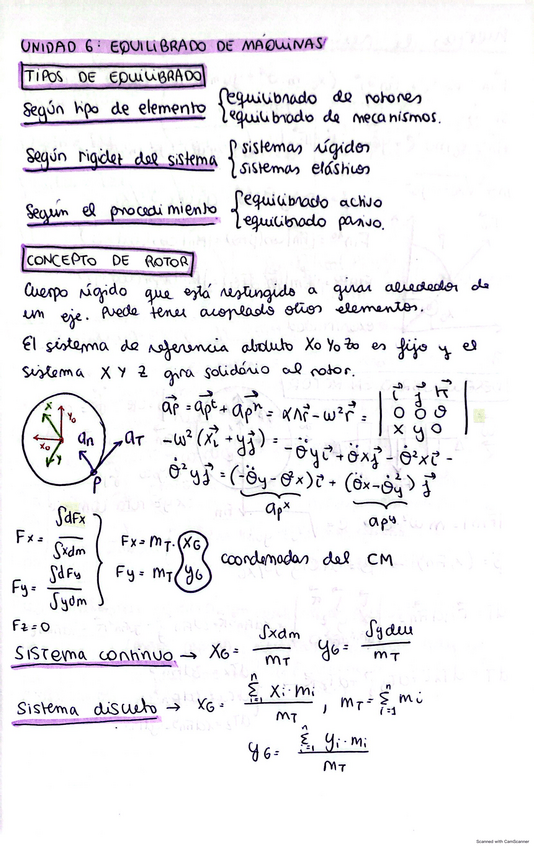 UNIDAD 6: EQUILIBRADO DE MÁQUINAS
TIPOS DE EQUILIBRADO
Según tipo de elemento { equilibrado de rotores
equilibrado de mecanismos.
Según rigidez del sistema { sistemas rígidos
sistemas elásticos
Según el procedimiento { equilibrado activo
equilibrado pasivo.
CONCEPTO DE ROTOR
Cuerpo rígido que está restringido a girar alrededor de
un eje. Puede tener acoplado otros elementos.
El sistema de referencia absoluto X₀ Y₀ Z₀ es fijo y el
sistema X Y Z gira solidário al rotor.
x y₀ x₀ y aₙ a_T P
a⃗p = a⃗pᵗ + a⃗pⁿ = α∧r⃗ − ω²r⃗ = | i⃗ j⃗ k⃗ |
| 0 0 θ̈ |
| x y 0 |
−ω²(xi⃗ + yj⃗) = −θ̈yi⃗ + θ̈xj⃗ − θ̇²xi⃗ −
θ̇²yj⃗ = (−θ̈y − θ̇²x)i⃗ + (θ̈x − θ̇²y)j⃗
apˣ apʸ
Fx = ∫dFx / ∫xdm
Fy = ∫dFy / ∫ydm
Fz = 0
Fx = m_T · x_G
Fy = m_T y_G
coordenadas del CM
Sistema continuo → X_G = ∫xdm / m_T y_G = ∫ydm / m_T
Sistema discreto → x_G = Σⁿᵢ₌₁ xᵢ·mᵢ / m_T , m_T = Σⁿᵢ₌₁ mᵢ
y_G = Σⁿᵢ₌₁ yᵢ·mᵢ / m_T
Scanned with CamScanner